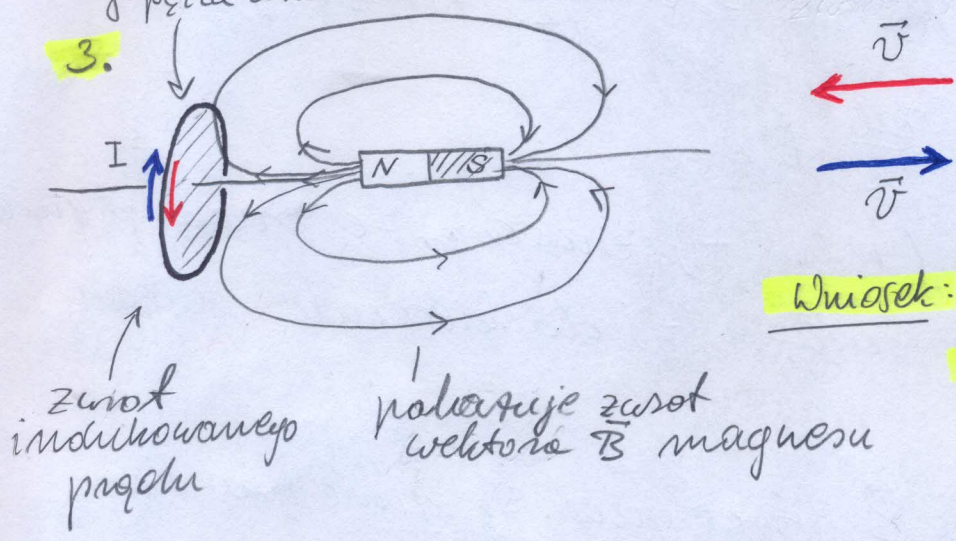 3.
I
N S
v⃗
v⃗
Wniosek:
zwrot
indukowanego
prądu
pokazuje zwrot
wektora B⃗ magnesu